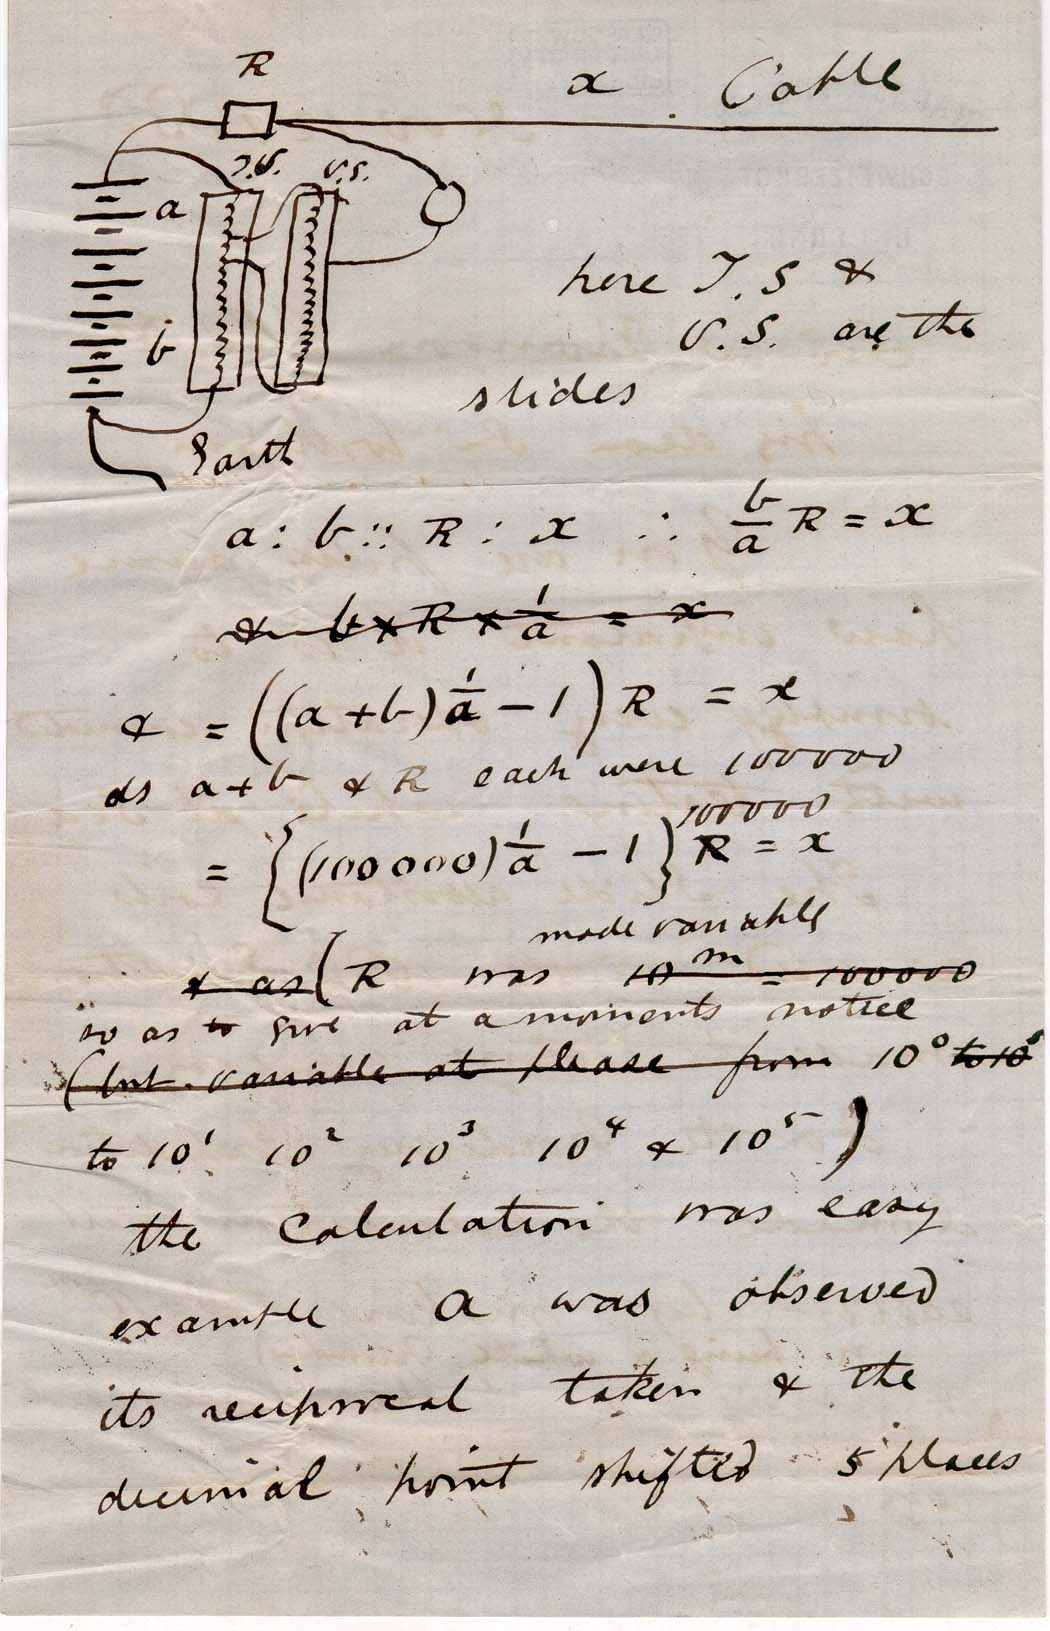 R
x Cable
T.S. V.S.
a
here T.S &
V.S. are the
b
slides
Earth
a : b :: R : x ∴ b/a R = x
& b × R × 1/a = x
& = ((a+b) 1/a - 1) R = x
as a+b & R each were 100000
100000
= {(100000) 1/a - 1} R = x
made variable
& as (R was 10 m = 100000
so as to give at a moments notice
(but variable at please from 10⁰ to 10⁵
to 10¹ 10² 10³ 10⁴ & 10⁵)
the calculation was easy
example a was observed
its reciprocal taken & the
decimal point shifted 5 places